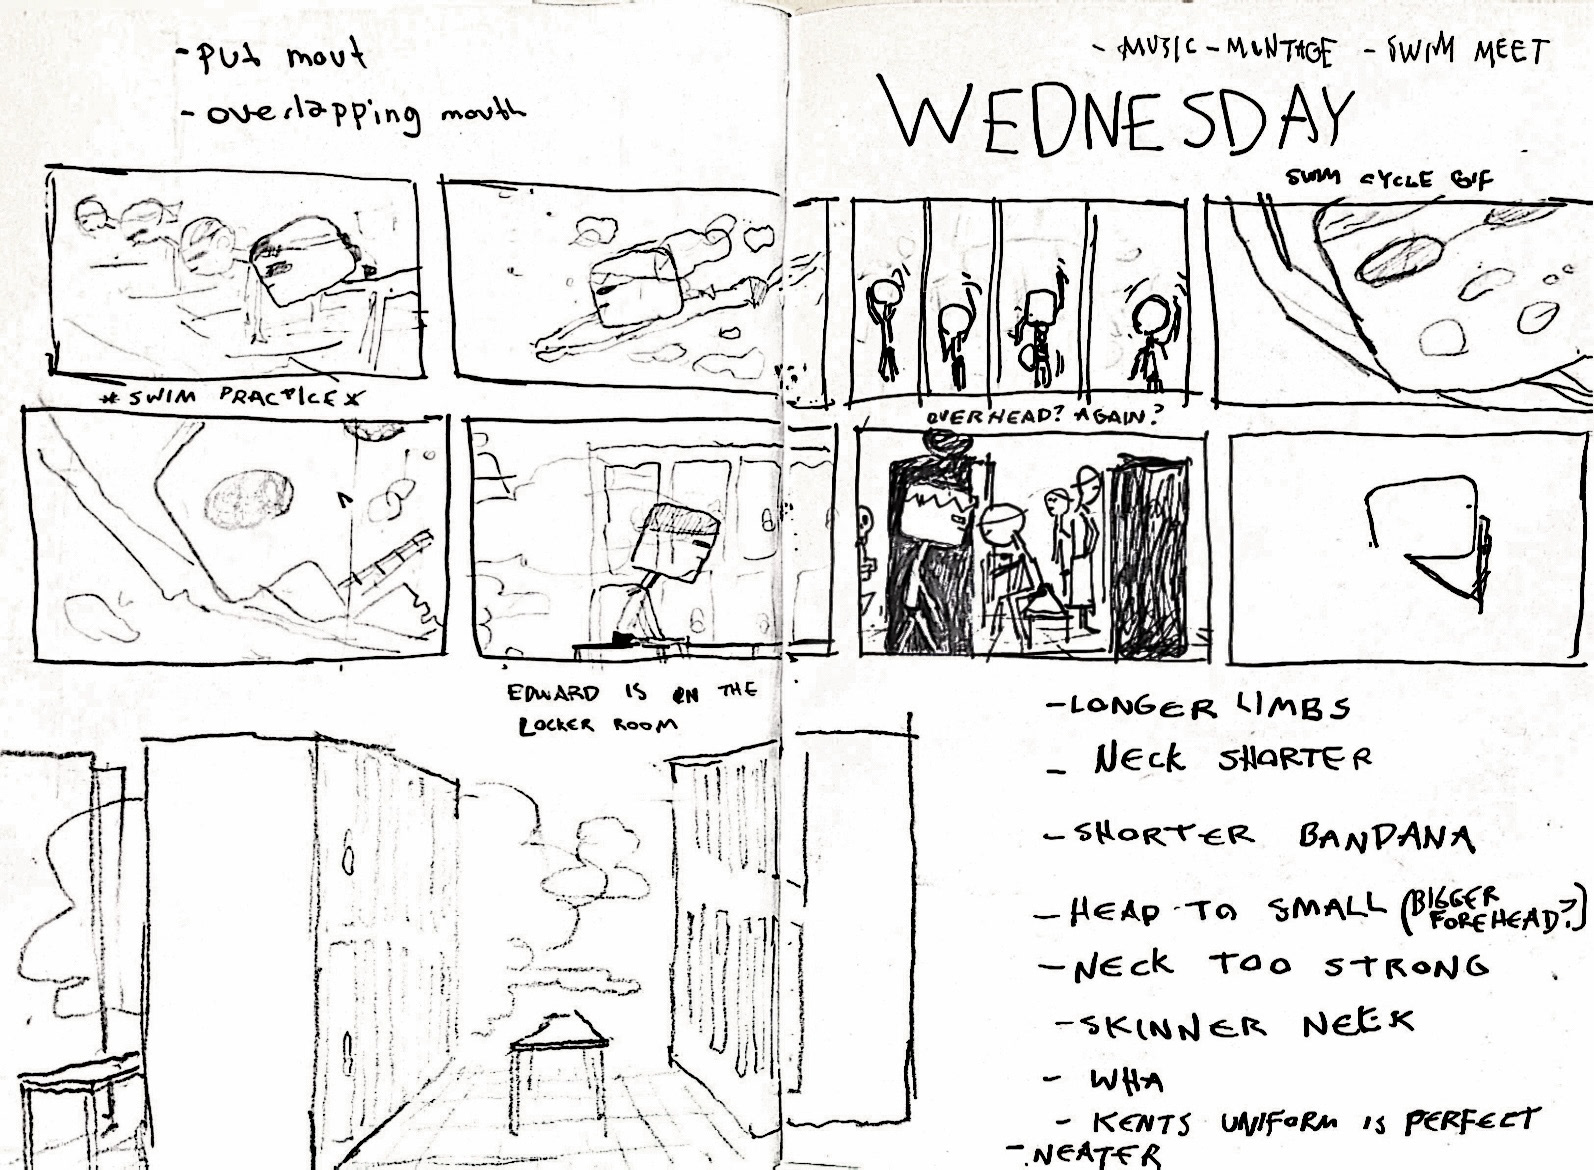 -put mout
-overlapping mouth
- MUSIC - MONTAGE - SWIM MEET
WEDNESDAY
SWIM CYCLE GIF
* SWIM PRACTICE *
OVERHEAD? AGAIN?
EDWARD IS ON THE
LOCKER ROOM
-LONGER LIMBS
- NECK SHORTER
-SHORTER BANDANA
-HEAD TO SMALL (BIGGER
FOREHEAD?)
-NECK TOO STRONG
-SKINNER NECK
- WHA
- KENTS UNIFORM IS PERFECT
- NEATER